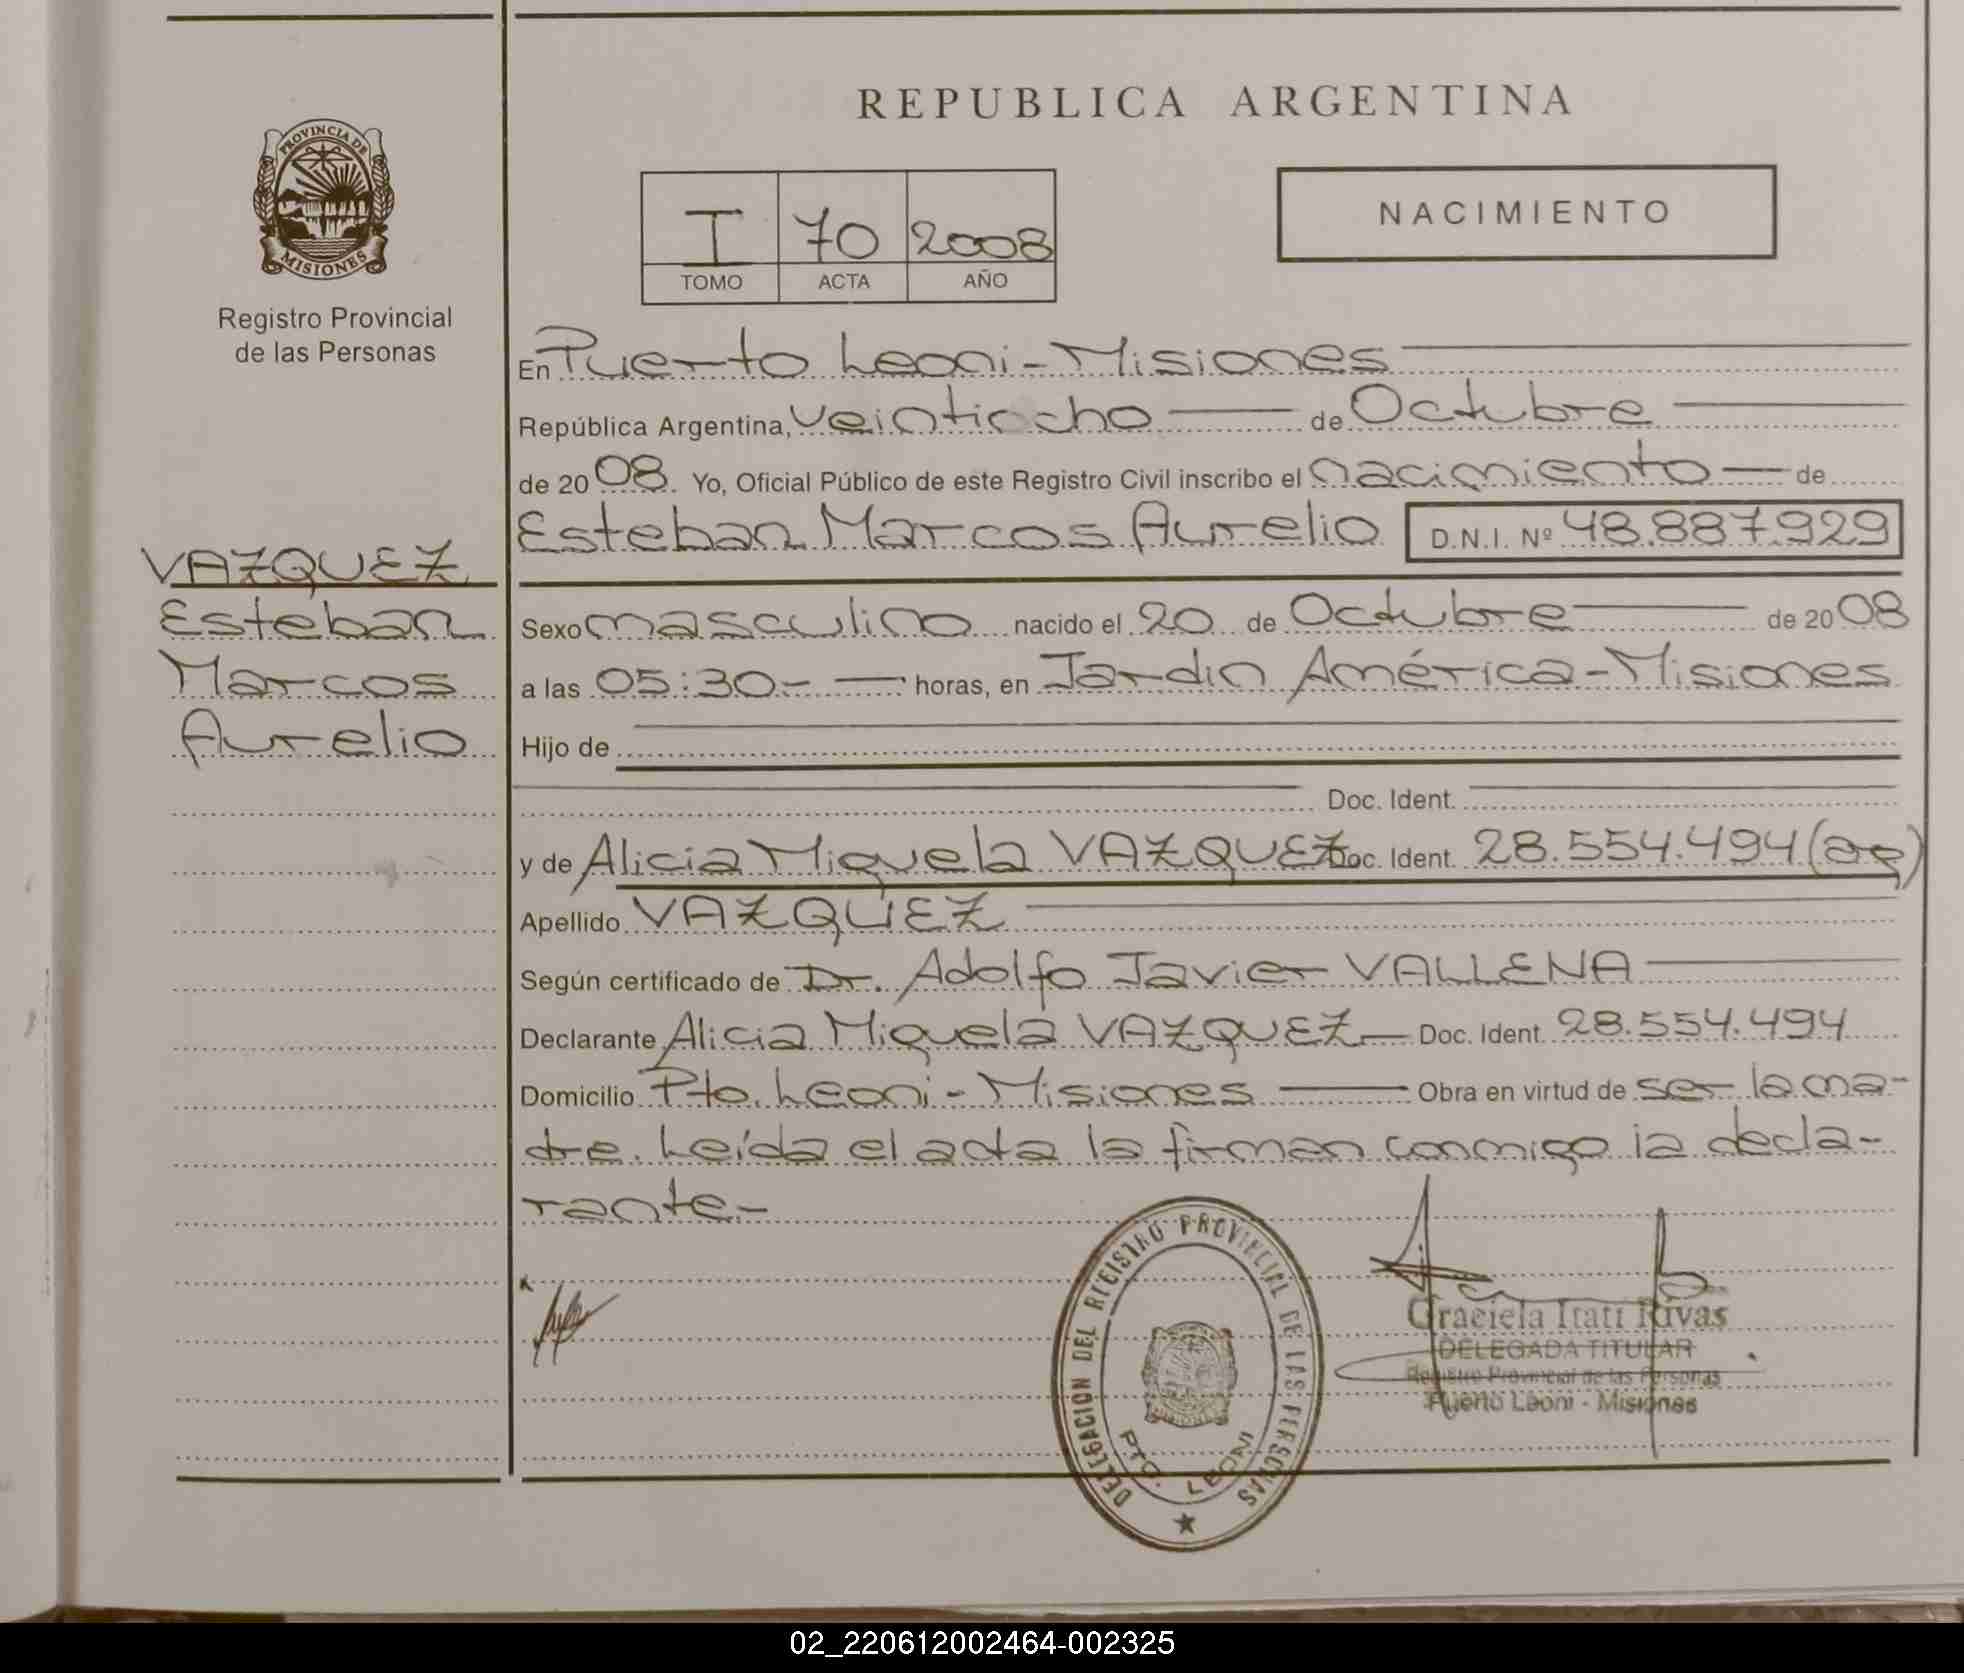 REPUBLICA ARGENTINA
PROVINCIA DE
MISIONES
Registro Provincial
de las Personas
I 70 2008
TOMO ACTA AÑO
NACIMIENTO
En Puerto Leoni - Misiones
República Argentina, veintiocho de Octubre
de 20 08. Yo, Oficial Público de este Registro Civil inscribo el nacimiento de
Esteban Marcos Aurelio D.N.I. Nº 48.887.929
VAZQUEZ
Esteban
Marcos
Aurelio
Sexo masculino nacido el 20 de Octubre de 20 08
a las 05:30.- horas, en Jardin América - Misiones
Hijo de
Doc. Ident.
y de Alicia Miquela VAZQUEZ Doc. Ident. 28.554.494 (ar)
Apellido VAZQUEZ
Según certificado de Dr. Adolfo Javier VALLENA
Declarante Alicia Miquela VAZQUEZ Doc. Ident. 28.554.494
Domicilio Pto. Leoni - Misiones Obra en virtud de ser la ma-
dre. Leída el acta la firman conmigo la decla-
rante.-
DELEGACION DEL REGISTRO PROVINCIAL DE LAS PERSONAS
PTO. LEONI
Graciela Itatí Rivas
DELEGADA TITULAR
Registro Provincial de las Personas
Puerto Leoni - Misiones
02_220612002464-002325